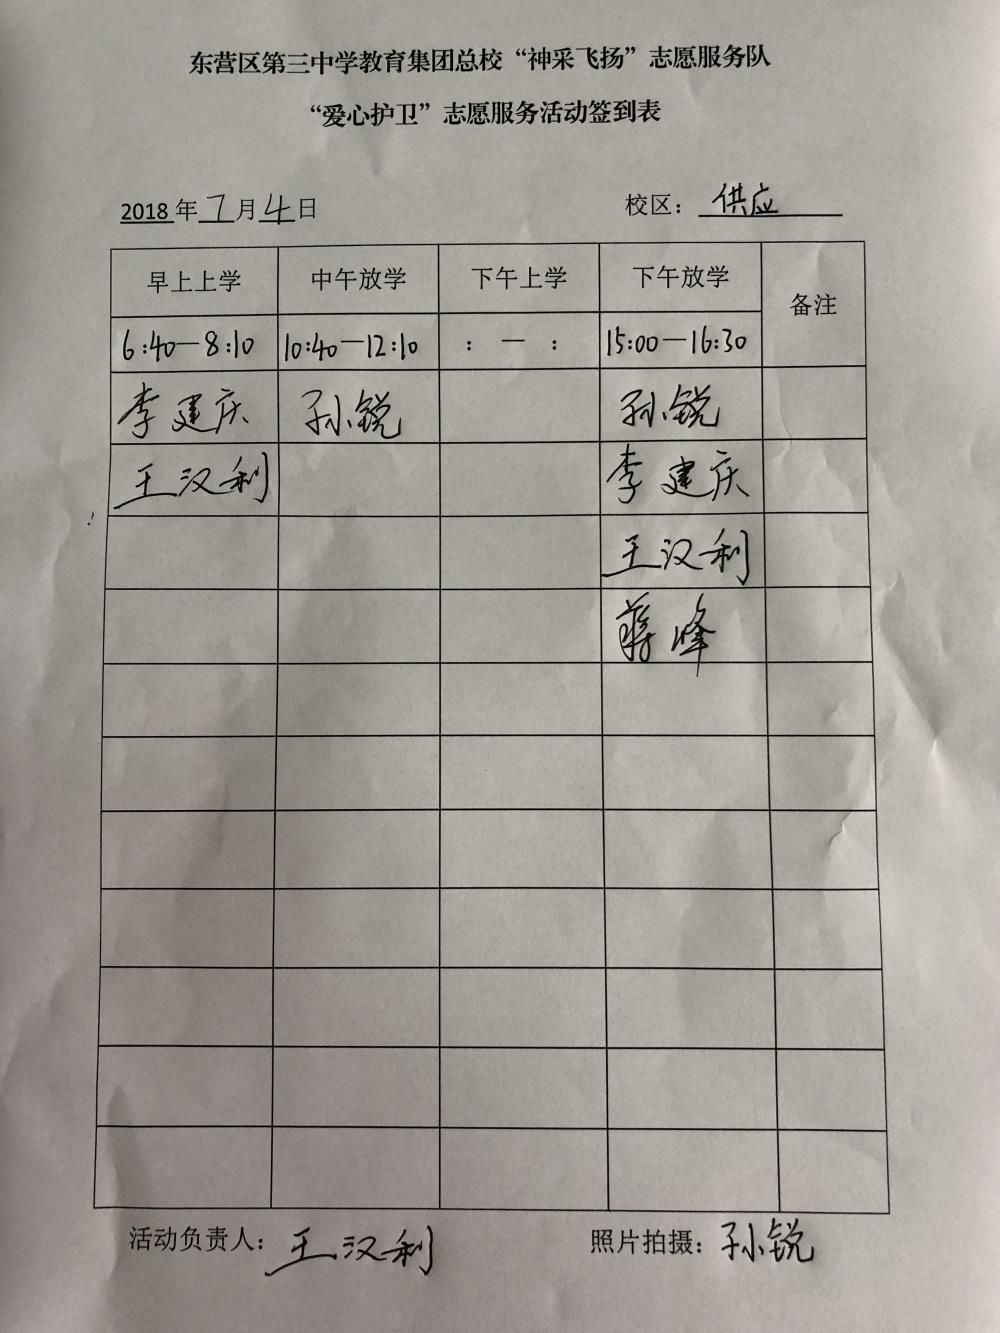 东营区第三中学教育集团总校“神采飞扬”志愿服务队
“爱心护卫”志愿服务活动签到表
2018年7月4日 校区：供应
早上上学 中午放学 下午上学 下午放学 备注
6:40—8:10 10:40—12:10 : — : 15:00—16:30
李建庆 孙锐 孙锐
王汉利 李建庆
王汉利
蒋峰
活动负责人：王汉利 照片拍摄：孙锐